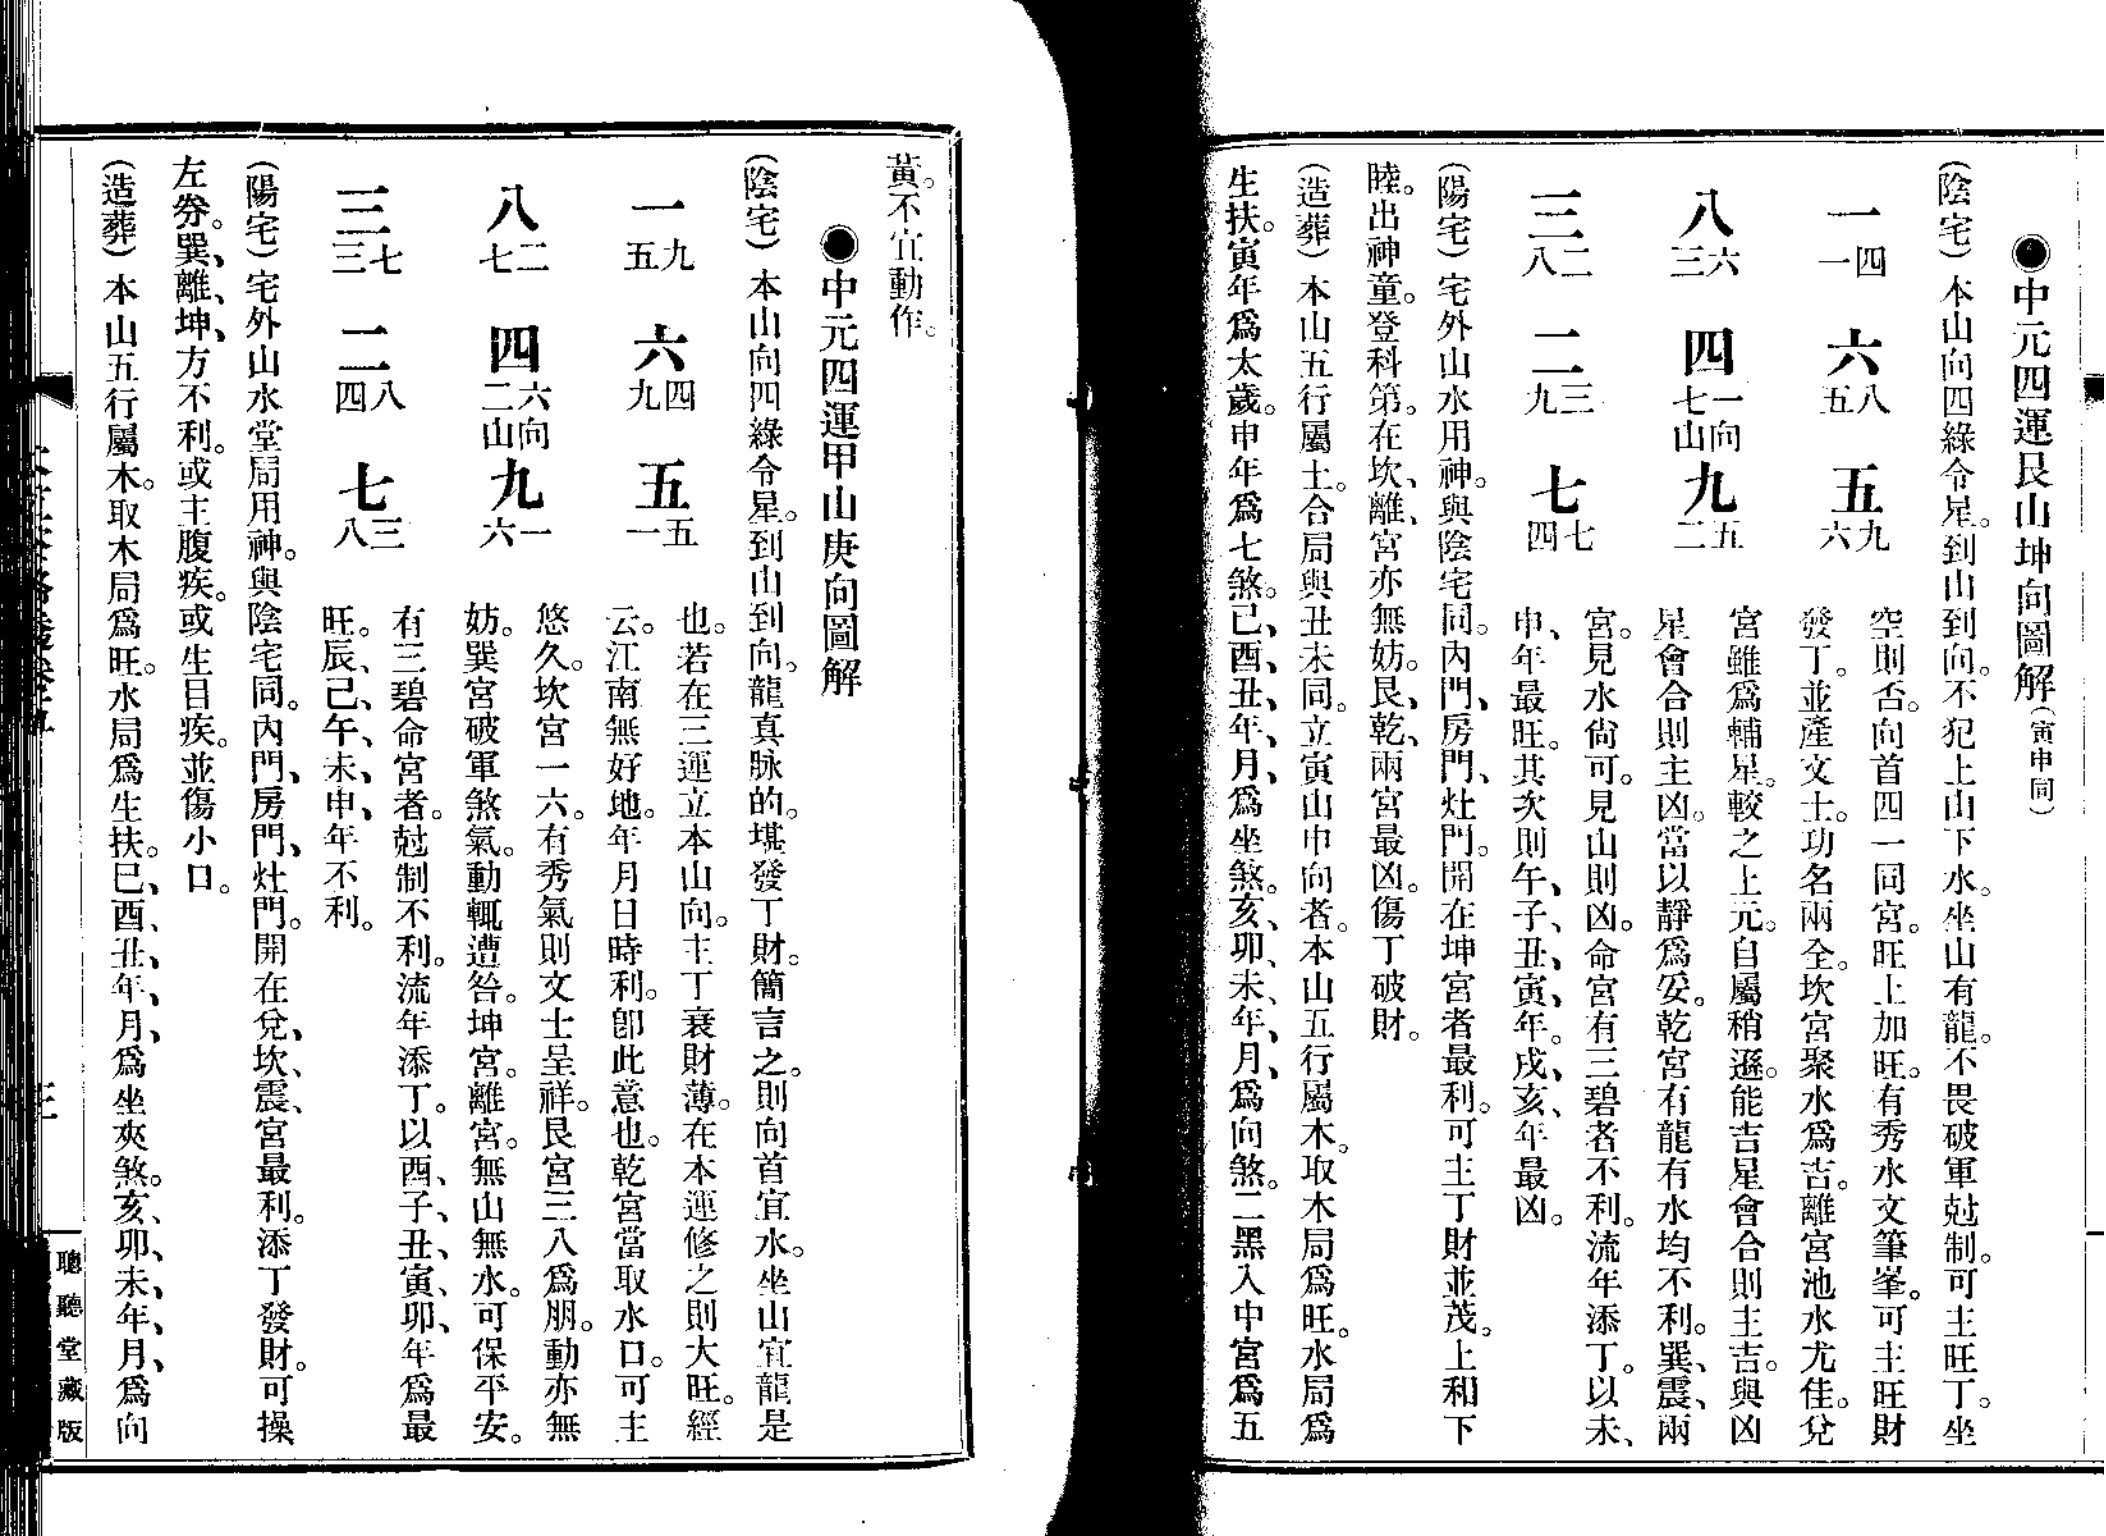 ●中元四運艮山坤向圖解(寅申同)
(陰宅)本山向四綠令星。到山到向。不犯上山下水。坐山有龍。不畏破軍尅制。可主旺丁。坐
空則否。向首四一同宮。旺上加旺。有秀水文筆峯。可主旺財
發丁。並產文士。功名兩全。坎宮聚水爲吉。離宮池水尤佳。兌
宮雖爲輔星。較之上元。自屬稍遜。能吉星會合則主吉。與凶
星會合則主凶。當以靜爲妥。乾宮有龍有水均不利。巽、震、兩
宮。見水尙可。見山則凶。命宮有三碧者不利。流年添丁。以未、
申、年最旺。其次則午、子、丑、寅、年。戌、亥、年最凶。
一 四一
六 八五
五 九六
八 六三
四 一七 向山
九 五二
三 二八
二 三九
七 七四
(陽宅)宅外山水用神。與陰宅同。內門、房門、灶門。開在坤宮者最利。可主丁財並茂。上和下
睦。出神童。登科第。在坎、離、宮亦無妨。艮、乾、兩宮最凶。傷丁破財。
(造葬)本山五行屬土。合局與丑未同。立寅山申向者。本山五行屬木。取木局爲旺。水局爲
生扶。寅年爲太歲。申年爲七煞。巳、酉、丑、年、月、爲坐煞。亥、卯、未、年、月、爲向煞。二黑入中宮爲五
黃。不宜動作。
●中元四運甲山庚向圖解
(陰宅)本山向四綠令星。到山到向。龍眞脉的。堪發丁財。簡言之。則向首宜水。坐山宜龍是
也。若在三運立本山向。主丁衰財薄。在本運修之則大旺。經
云。江南無好地。年月日時利。卽此意也。乾宮當取水口。可主
悠久。坎宮一六。有秀氣則文士呈祥。艮宮三八爲朋。動亦無
妨。巽宮破軍煞氣。動輒遭咎。坤宮。離宮。無山無水。可保平安。
有三碧命宮者。尅制不利。流年添丁。以酉、子、丑、寅、卯、年爲最
旺。辰、巳、午、未、申、年不利。
一 九五
六 四九
五 五一
八 二七
四 六二 向山
九 一六
三 七三
二 八四
七 三八
(陽宅)宅外山水堂局用神。與陰宅同。內門、房門、灶門。開在兌、坎、震、宮最利。添丁發財。可操
左券。巽、離、坤、方不利。或主腹疾。或生目疾。並傷小口。
(造葬)本山五行屬木。取木局爲旺。水局爲生扶。巳、酉、丑、年、月、爲坐夾煞。亥、卯、未、年、月、爲向
聽聽堂藏版